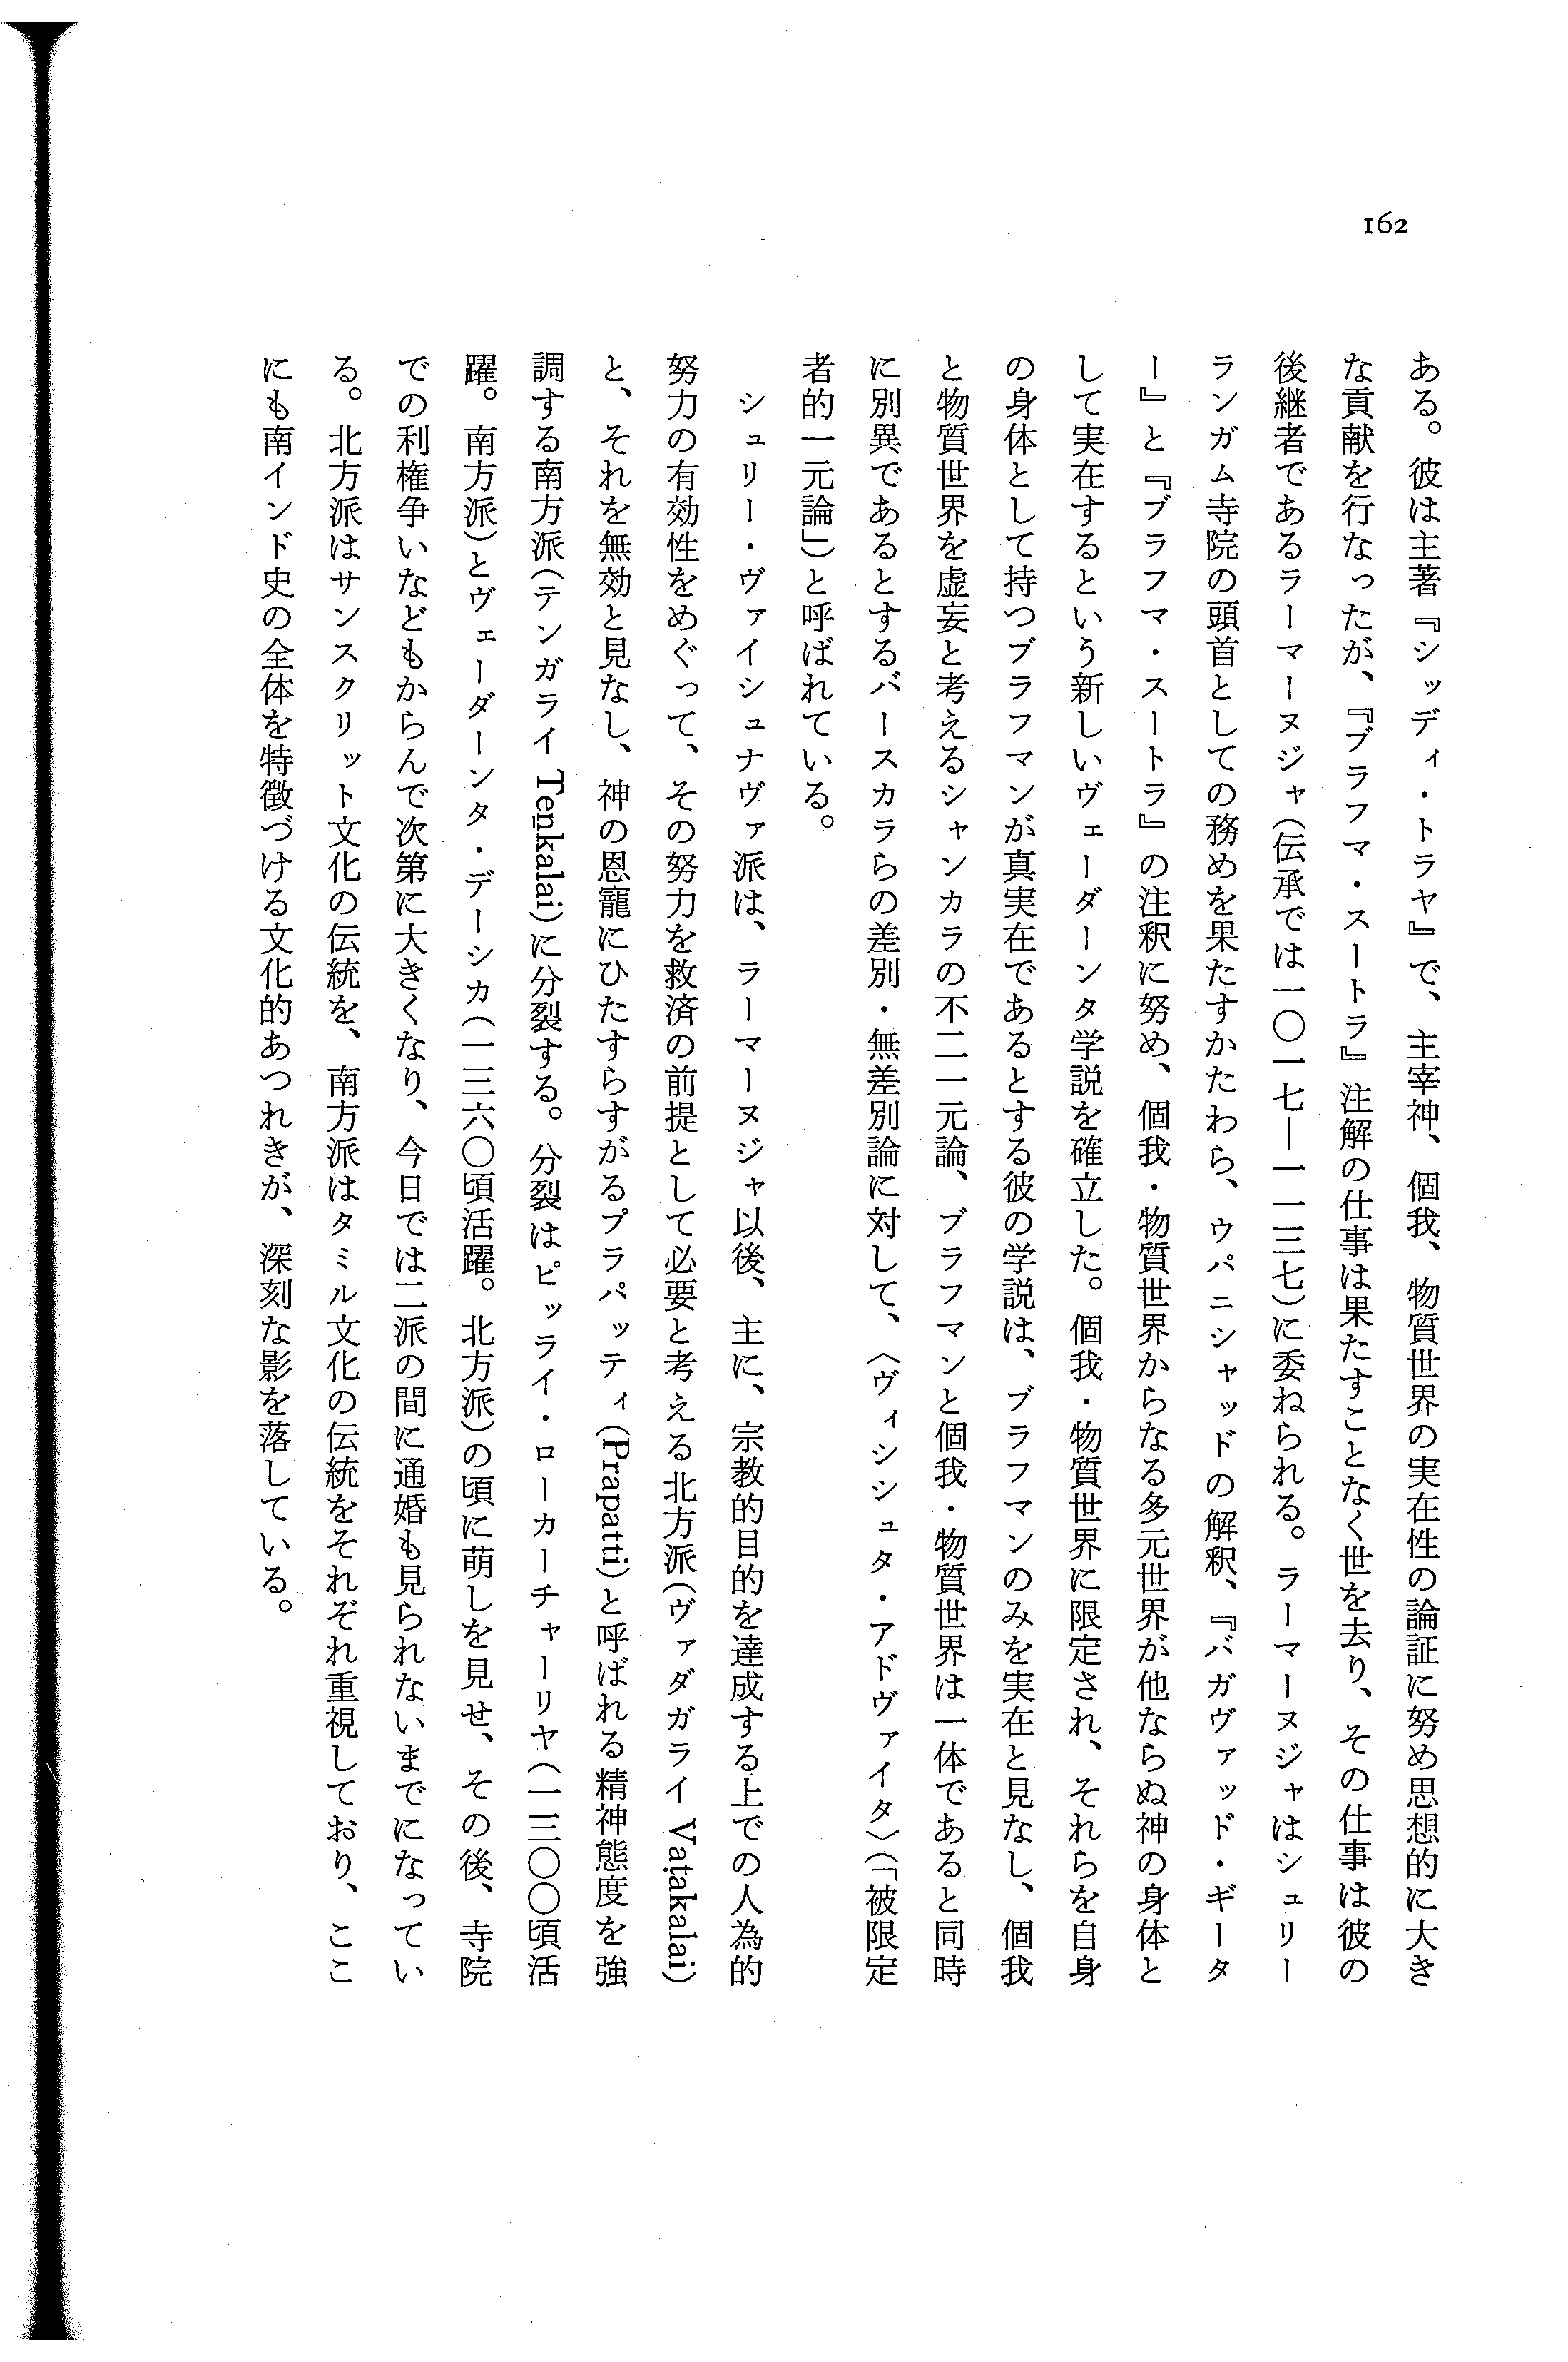 162
ある。彼は主著『シッディ・トラヤ』で、主宰神、個我、物質世界の実在性の論証に努め思想的に大き
な貢献を行なったが、『ブラフマ・スートラ』注解の仕事は果たすことなく世を去り、その仕事は彼の
後継者であるラーマーヌジャ(伝承では一〇一七―一一三七)に委ねられる。ラーマーヌジャはシュリー
ランガム寺院の頭首としての務めを果たすかたわら、ウパニシャッドの解釈、『バガヴァッド・ギータ
ー』と『ブラフマ・スートラ』の注釈に努め、個我・物質世界からなる多元世界が他ならぬ神の身体と
して実在するという新しいヴェーダーンタ学説を確立した。個我・物質世界に限定され、それらを自身
の身体として持つブラフマンが真実在であるとする彼の学説は、ブラフマンのみを実在と見なし、個我
と物質世界を虚妄と考えるシャンカラの不二一元論、ブラフマンと個我・物質世界は一体であると同時
に別異であるとするバースカラらの差別・無差別論に対して、〈ヴィシシュタ・アドヴァイタ〉(「被限定
者的一元論」)と呼ばれている。
シュリー・ヴァイシュナヴァ派は、ラーマーヌジャ以後、主に、宗教的目的を達成する上での人為的
努力の有効性をめぐって、その努力を救済の前提として必要と考える北方派(ヴァダガライ Vaṭakalai)
と、それを無効と見なし、神の恩寵にひたすらすがるプラパッティ(Prapatti)と呼ばれる精神態度を強
調する南方派(テンガライ Teṉkalai)に分裂する。分裂はピッライ・ローカーチャーリヤ(一三〇〇頃活
躍。南方派)とヴェーダーンタ・デーシカ(一三六〇頃活躍。北方派)の頃に萌しを見せ、その後、寺院
での利権争いなどもからんで次第に大きくなり、今日では二派の間に通婚も見られないまでになってい
る。北方派はサンスクリット文化の伝統を、南方派はタミル文化の伝統をそれぞれ重視しており、ここ
にも南インド史の全体を特徴づける文化的あつれきが、深刻な影を落している。